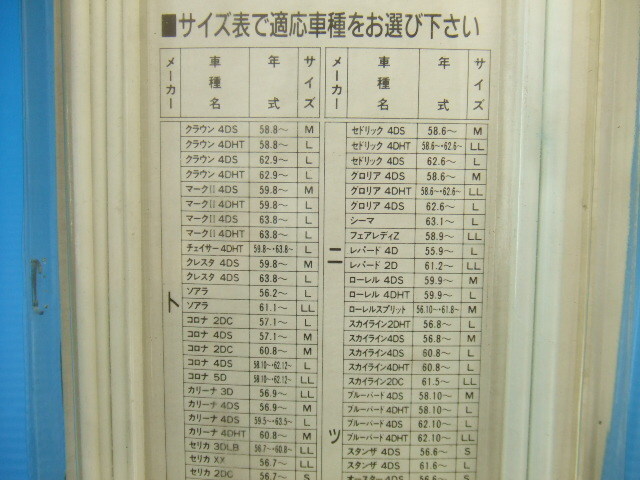 ■サイズ表で適応車種をお選び下さい
メーカー 車種名 年式 サイズ
ト
クラウン 4DS 58.8〜 M
クラウン 4DHT 58.8〜 L
クラウン 4DS 62.9〜 L
クラウン 4DHT 62.9〜 L
マークII 4DS 59.8〜 M
マークII 4DHT 59.8〜 L
マークII 4DS 63.8〜 L
マークII 4DHT 63.8〜 L
チェイサー 4DHT 59.8〜・63.8〜 L
クレスタ 4DS 59.8〜 M
クレスタ 4DS 63.8〜 L
ソアラ 56.2〜 L
ソアラ 61.1〜 LL
コロナ 2DC 57.1〜 L
コロナ 4DS 57.1〜 M
コロナ 2DC 60.8〜 M
コロナ 4DS 58.10〜・62.12〜 L
コロナ 5D 58.10〜・62.12〜 LL
カリーナ 3D 56.9〜 LL
カリーナ 4DS 56.9〜 M
カリーナ 4DS 59.5〜・63.5〜 L
カリーナ 4DHT 60.8〜 M
セリカ 3DLB 56.7〜・60.8〜 LL
セリカ XX 56.7〜 LL
セリカ 2DC 56.7〜 S
メーカー 車種名 年式 サイズ
ニッ
セドリック 4DS 58.6〜 M
セドリック 4DHT 58.6〜・62.6〜 LL
セドリック 4DS 62.6〜 L
グロリア 4DS 58.6〜 M
グロリア 4DHT 58.6〜・62.6〜 LL
グロリア 4DS 62.6〜 L
シーマ 63.1〜 L
フェアレディZ 58.9〜 LL
レパード 4D 55.9〜 L
レパード 2D 61.2〜 LL
ローレル 4DS 59.9〜 M
ローレル 4DHT 59.9〜 L
ローレルスプリット 56.10〜・61.8〜 M
スカイライン2DHT 56.8〜 L
スカイライン4DS 56.8〜 M
スカイライン4DS 60.8〜 L
スカイライン4DHT 60.8〜 L
スカイライン2DC 61.5〜 LL
ブルーバード 4DS 58.10〜 M
ブルーバード 4DHT 58.10〜 L
ブルーバード 4DS 62.10〜 L
ブルーバード 4DHT 62.10〜 LL
スタンザ 4DS 56.6〜 S
スタンザ 4DS 61.6〜 L
オースター 4DS 56.6〜 S